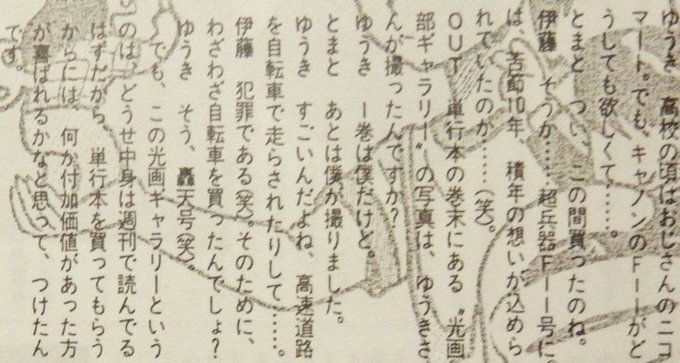 ゆうき　高校の頃はおじさんのニコ
マート。でも、キャノンのF—1がど
うしても欲しくて……。
とまと　つい、この間買ったのね。
伊藤　そうか……超兵器F—1号に
は、苦節10年、積年の想いが込めら
れていたのか……(笑)。
OUT　単行本の巻末にある〝光画
部ギャラリー〟の写真は、ゆうきさ
んが撮ったんですか？
ゆうき　1巻は僕だけど。
とまと　あとは僕が撮りました。
ゆうき　すごいんだよね、高速道路
を自転車で走らされたりして……。
伊藤　犯罪である(笑)。そのために、
わざわざ自転車を買ったんでしょ？
ゆうき　そう、轟天号(笑)。
　でも、この光画ギャラリーという
のは、どうせ中身は週刊で読んでる
はずだから、単行本を買ってもらう
からには、何か付加価値があった方
が喜ばれるかなと思って、つけたん
です